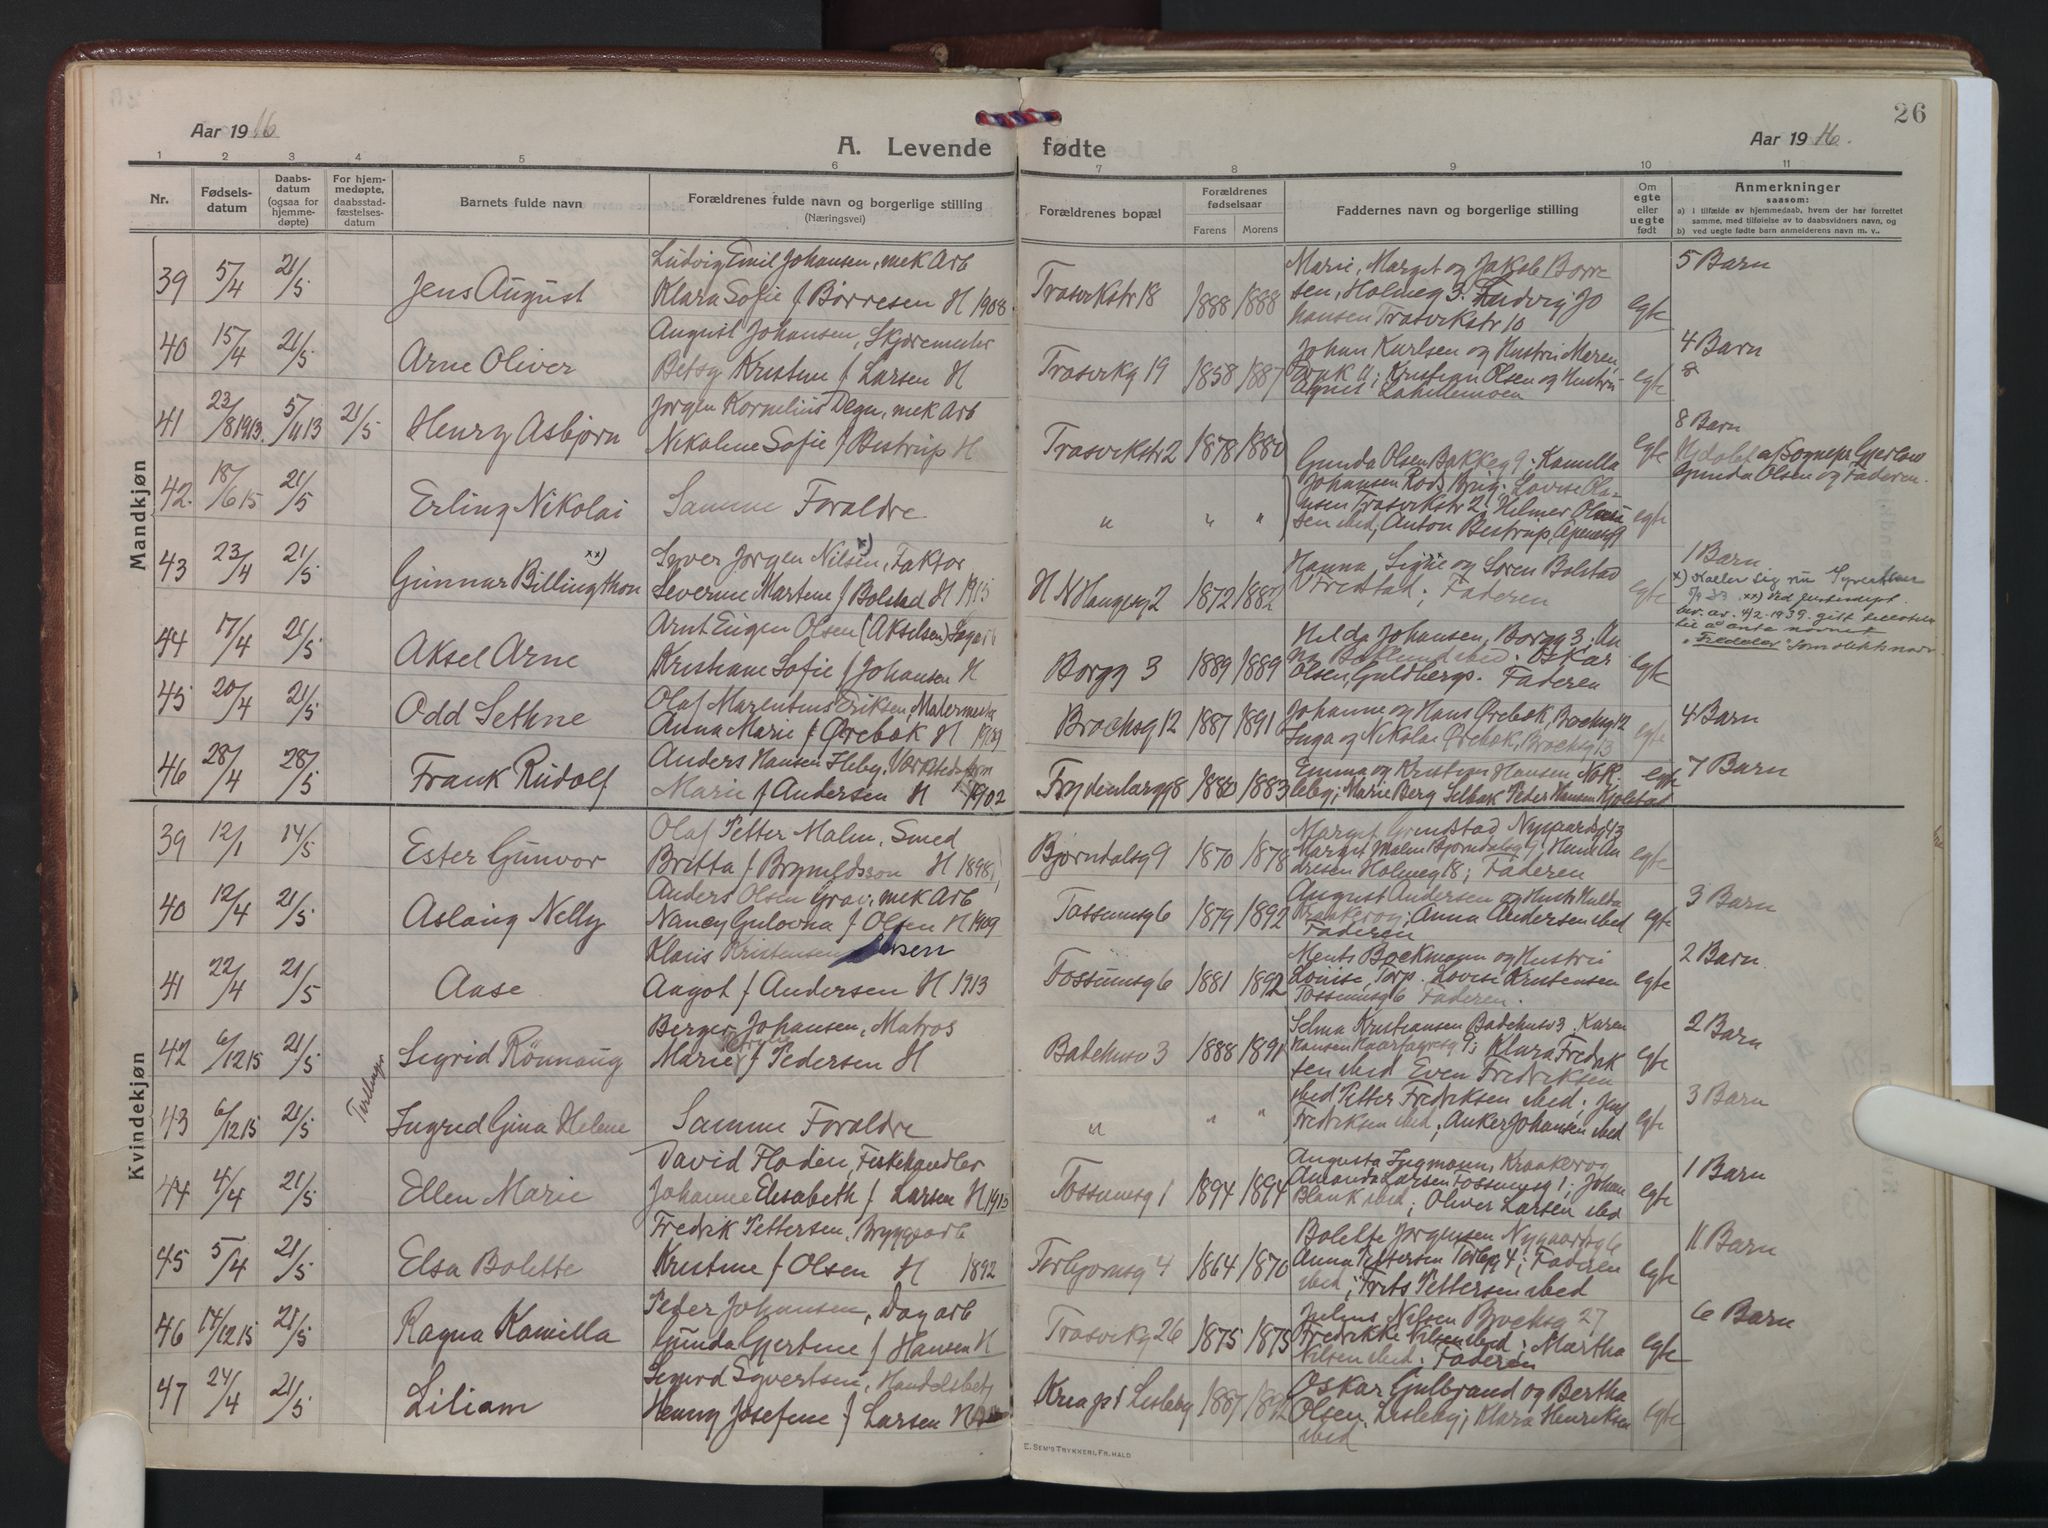 26
Aar 1916
A. Levende fødte
Aar 1916.
1 2 3 4 5 6 7 8 9 10 11
Nr.
Fødsels-datum
Daabs-datum (ogsaa for hjemme-døpte)
For hjem-medøpte, daabsstad-fæstelses-datum
Barnets fulde navn
Forældrenes fulde navn og borgerlige stilling
(Næringsvei)
Forældrenes bopæl
Forældrenes fødselsaar
Farens Morens
Faddernes navn og borgerlige stilling
Om egte eller uegte født
Anmerkninger
saasom:
a) i tilfælde av hjemmedaab, hvem der har forrettet samme, med tilføielse av to daabsvidners navn, og
b) ved uegte fødte barn anmelderens navn m. v..
Mandkjøn
39 5/4 21/5 Jens August
Ludvig Emil Johansen, mek Arb
Klara Sofie f Børresen H 1908.
Trosvikstr 18 1888 1888
Marie, Marget og Jakob Borre
sen, Holmeg 3. Ludvig Jo
hansen Trosvikstr 10
egte 5 Barn
40 15/4 21/5 Arne Oliver
August Johansen,
Betsy Kristine f Larsen H
Trosvikg 19 1858 1887
Johan Karlsen og Hustru Maren,
Kristian Olsen og Hustru
egte 4 Barn
41 23/8 1913. 5/11 13 21/5 Henry Asbjørn
Jørgen Kornelius Degn, mek Arb
Nikoline Sofie f Bestrup H
Trosvikstr 2 1878 1880
egte 8 Barn
Hjdøbt af Sognepr Gjerløw
Gunda Olsen og Faderen.
42. 18/6 15 21/5 Erling Nikolai
Samme Foraldre
" " "
Gunda Olsen Bakkeg 9; Kamilla
Johansen Lovise Ola-
nsen Trosvikstr 2; Helmer
sen ibid, Anton Bestrup,
egte
43 23/4 21/5 Gunnar Billingthon xx)
Syver Jørgen Nilsen, x) Faktor
Severine Martine f Bolstad H 1915
H N Haugesg 2 1872 1882
Hanna, Signe og Søren Bolstad
Fredstad; Faderen
egte 1 Barn
x) Kaller sig nu Syvertsen
xx) Ved
bev. av 4/2-1939. gitt tillatelse
til å anta navnet
44 17/4 21/5 Aksel Arne
Arnt Eugen Olsen (Akselsen)
Kristiane Sofie f Johansen H
Borgg 3 1889 1889
Helda Johansen, Borgg 3; An
na ibid. Oskar
Olsen, Guldbergs. Faderen
egte
45 20/4 21/5 Odd Sethne
Olaf Marentius Eriksen, Malermester
Anna Marie f Ørebæk H 1909
Brochsg 12 1887 1891
Johanne og Hans Ørebæk, Brochsg 12
Inga og Nikolai Ørebæk, Brochsg 13
egte 4 Barn
46 28/4 28/5 Frank Rudolf
Anders Hansen Ileby,
Marie f Andersen H 1902
Frydenbergg 8 1880 1883
Emma og Kristine Hansen
leby; Marie Berg Selbak Peter Hansen Kjolstad
egte 7 Barn
Kvindekjøn
39 12/1 14/5 Ester Gunvor
Olaf Petter Malm, Smed
Britta f Brynildsson H 1898
Bjørndalsg 9 1870 1878
Marget Grindstad Nygaardsg 43
Marget Malm Bjørndalsg 9; Hans An
dresen Holmeg 18; Faderen
egte
40 12/4 21/5 Aslaug Nelly
Anders Olsen Grav, mek Arb
Nancy Gulovna f Olsen H 1909
Tossumsg 6 1879 1892
August Andersen og Hustr Hulda
Kraakerøy; Anna Andersen ibid
Faderen
egte 3 Barn
41 22/4 21/5 Aase
Klaus Kristensen
Aagot f Andersen H 1913
Tossumsg 6 1881 1892
Ments Bøckmann og Hustru
Louise, Torp. Lovise Kristensen
Tossumsg 6 Faderen.
egte 2 Barn
42 6/12 15 21/5 Tvillinger Sigrid Rönnaug
Berger Johansen, Matros
Marie f Pedersen H
Badehusv 3 1888 1891
Selma Kristiansen Badehusv 3. Karen
Hansen Haarfagresg 9; Klara Fredrik
sen ibid Even Fredriksen
egte 2 Barn
43 6/12 15 21/5 Ingrid Gina Helene
Samme Foraldre
" " "
ibid Petter Fredriksen ibid; Jens
Fredriksen ibid; Anker Johansen ibid
egte 3 Barn
44 4/4 21/5 Ellen Marie
David Floden, Fiskehandler
Johanne Elisabeth f Larsen H 1915
Tossumsg 1 1894 1894
Augusta Ingmann, Kraakerøy
Amanda Larsen Tossumsg 1; Johan
Blank ibid; Oliver Larsen ibid
egte 1 Barn
45 5/4 21/5 Elsa Bolette
Fredrik Pettersen, Bryggearb
Kristine f Olsen H 1892
Torbjørnsg 4 1864 1870
Bolette Jørgensen Nygaardsg 6
Anna Pettersen Torbg 4; Faderen
ibid; Frits Pettersen ibid
egte 11 Barn
46 14/12 15 21/5 Ragna Kamilla
Peder Johansen, Dagarb
Gunda Gjertine f Hansen H
Trosvikg 26 1875 1875
Julius Nilsen Brochsg 27
Fredrikke Nilsen ibid; Martha
Nilsen ibid; Faderen
egte 6 Barn
47 24/4 21/5 Liliam
Sigurd Syvertsen, Handelsbetj
Henny Josefine f Larsen H
Lisleby 1887 1892
Oskar Gulbrand og Bertha
Olsen, Lisleby; Klara Henriksen
ibid
egte
E. SEM'S TRYKKERI, FR.HALD